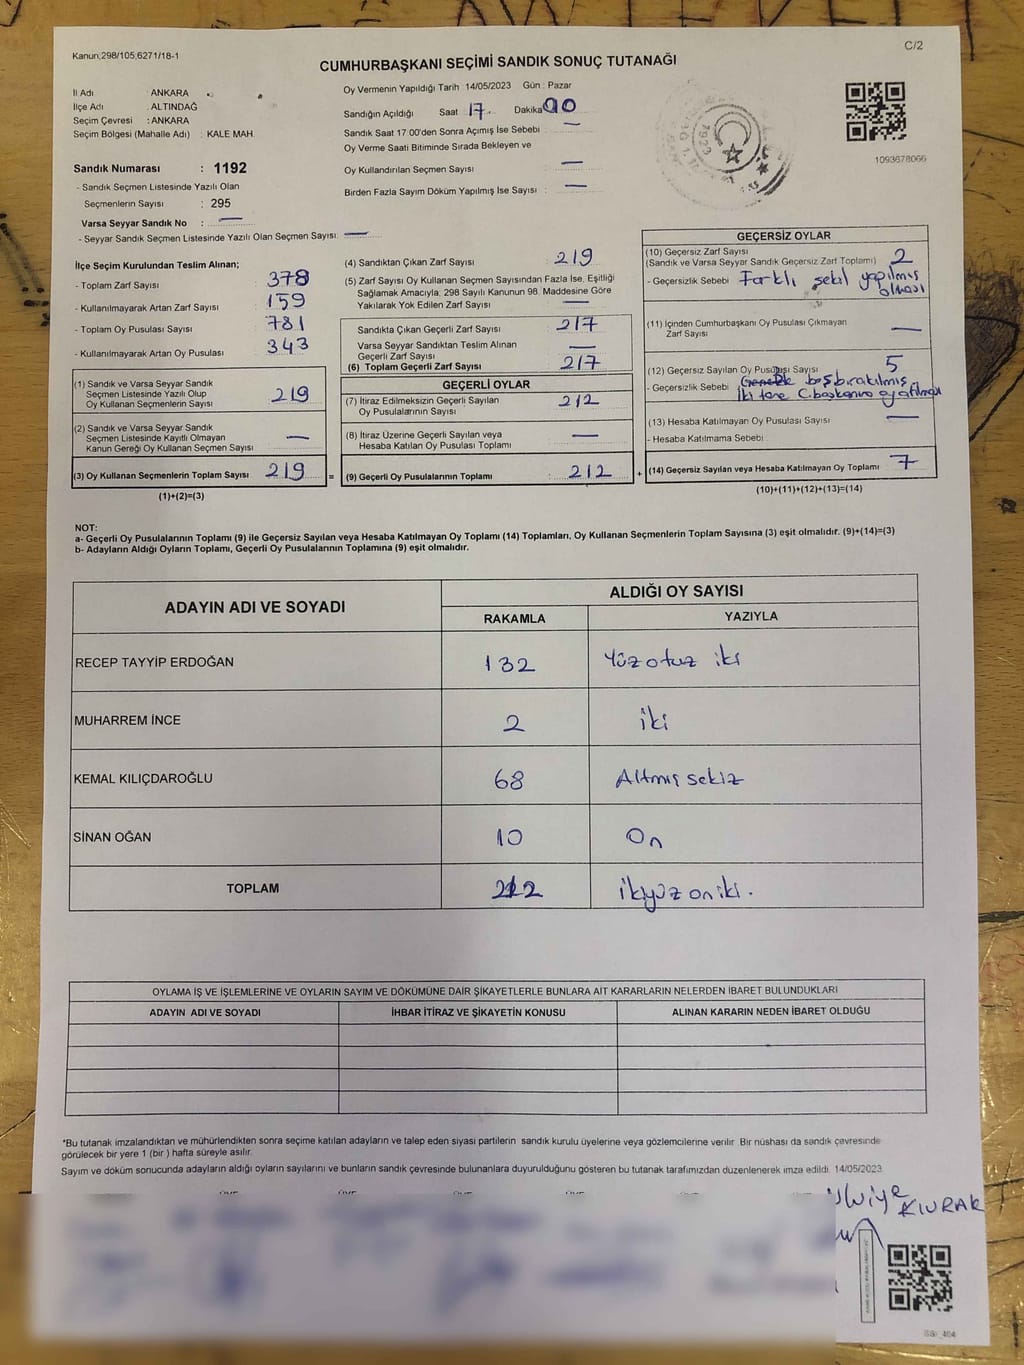 Kanun;298/105;6271/18-1
C/2
CUMHURBAŞKANI SEÇİMİ SANDIK SONUÇ TUTANAĞI
İl Adı : ANKARA
İlçe Adı : ALTINDAĞ
Seçim Çevresi : ANKARA
Seçim Bölgesi (Mahalle Adı) : KALE MAH.
Sandık Numarası : 1192
- Sandık Seçmen Listesinde Yazılı Olan
Seçmenlerin Sayısı : 295
Varsa Seyyar Sandık No : —
- Seyyar Sandık Seçmen Listesinde Yazılı Olan Seçmen Sayısı: —
Oy Vermenin Yapıldığı Tarih 14/05/2023 Gün : Pazar
Sandığın Açıldığı Saat 17 Dakika 00
Sandık Saat 17.00'den Sonra Açımış İse Sebebi —
Oy Verme Saati Bitiminde Sırada Bekleyen ve
Oy Kullandırılan Seçmen Sayısı —
Birden Fazla Sayım Döküm Yapılmış İse Sayısı : —
1923
1093678066
İlçe Seçim Kurulundan Teslim Alınan;
- Toplam Zarf Sayısı : 378
- Kullanılmayarak Artan Zarf Sayısı : 159
- Toplam Oy Pusulası Sayısı : 781
- Kullanılmayarak Artan Oy Pusulası : 343
(1) Sandık ve Varsa Seyyar Sandık
Seçmen Listesinde Yazılı Olup
Oy Kullanan Seçmenlerin Sayısı : 219
(2) Sandık ve Varsa Seyyar Sandık
Seçmen Listesinde Kayıtlı Olmayan
Kanun Gereği Oy Kullanan Seçmen Sayısı : —
(3) Oy Kullanan Seçmenlerin Toplam Sayısı : 219
(1)+(2)=(3)
=
(4) Sandıktan Çıkan Zarf Sayısı : 219
(5) Zarf Sayısı Oy Kullanan Seçmen Sayısından Fazla İse, Eşitliği
Sağlamak Amacıyla, 298 Sayılı Kanunun 98. Maddesine Göre
Yakılarak Yok Edilen Zarf Sayısı : —
Sandıkta Çıkan Geçerli Zarf Sayısı : 217
Varsa Seyyar Sandıktan Teslim Alınan
Geçerli Zarf Sayısı : —
(6) Toplam Geçerli Zarf Sayısı : 217
GEÇERLİ OYLAR
(7) İtiraz Edilmeksizin Geçerli Sayılan
Oy Pusulalarının Sayısı : 212
(8) İtiraz Üzerine Geçerli Sayılan veya
Hesaba Katılan Oy Pusulası Toplamı : —
(9) Geçerli Oy Pusulalarının Toplamı : 212
+
GEÇERSİZ OYLAR
(10) Geçersiz Zarf Sayısı
(Sandık ve Varsa Seyyar Sandık Geçersiz Zarf Toplamı) : 2
- Geçersizlik Sebebi : Farklı şekil yapılmış
olması
(11) İçinden Cumhurbaşkanı Oy Pusulası Çıkmayan
Zarf Sayısı : —
(12) Geçersiz Sayılan Oy Pusulası Sayısı : 5
- Geçersizlik Sebebi : boş bırakılmış
iki tane C.başkanına oy atılması
(13) Hesaba Katılmayan Oy Pusulası Sayısı : —
- Hesaba Katılmama Sebebi :
(14) Geçersiz Sayılan veya Hesaba Katılmayan Oy Toplamı : 7
(10)+(11)+(12)+(13)=(14)
NOT:
a- Geçerli Oy Pusulalarının Toplamı (9) ile Geçersiz Sayılan veya Hesaba Katılmayan Oy Toplamı (14) Toplamları, Oy Kullanan Seçmenlerin Toplam Sayısına (3) eşit olmalıdır. (9)+(14)=(3)
b- Adayların Aldığı Oyların Toplamı, Geçerli Oy Pusulalarının Toplamına (9) eşit olmalıdır.
ADAYIN ADI VE SOYADI
ALDIĞI OY SAYISI
RAKAMLA YAZIYLA
RECEP TAYYİP ERDOĞAN 132 Yüz otuz iki
MUHARREM İNCE 2 iki
KEMAL KILIÇDAROĞLU 68 Altmış sekiz
SİNAN OĞAN 10 On
TOPLAM 212 ikiyüz on iki.
OYLAMA İŞ VE İŞLEMLERİNE VE OYLARIN SAYIM VE DÖKÜMÜNE DAİR ŞİKAYETLERLE BUNLARA AİT KARARLARIN NELERDEN İBARET BULUNDUKLARI
ADAYIN ADI VE SOYADI İHBAR İTİRAZ VE ŞİKAYETİN KONUSU ALINAN KARARIN NEDEN İBARET OLDUĞU
*Bu tutanak imzalandıktan ve mühürlendikten sonra seçime katılan adayların ve talep eden siyasi partilerin sandık kurulu üyelerine veya gözlemcilerine verilir. Bir nüshası da sandık çevresinde
görülecek bir yere 1 (bir ) hafta süreyle asılır.
Sayım ve döküm sonucunda adayların aldığı oyların sayılarını ve bunların sandık çevresinde bulunanlara duyurulduğunu gösteren bu tutanak tarafımızdan düzenlenerek imza edildi. 14/05/2023
KIVRAK